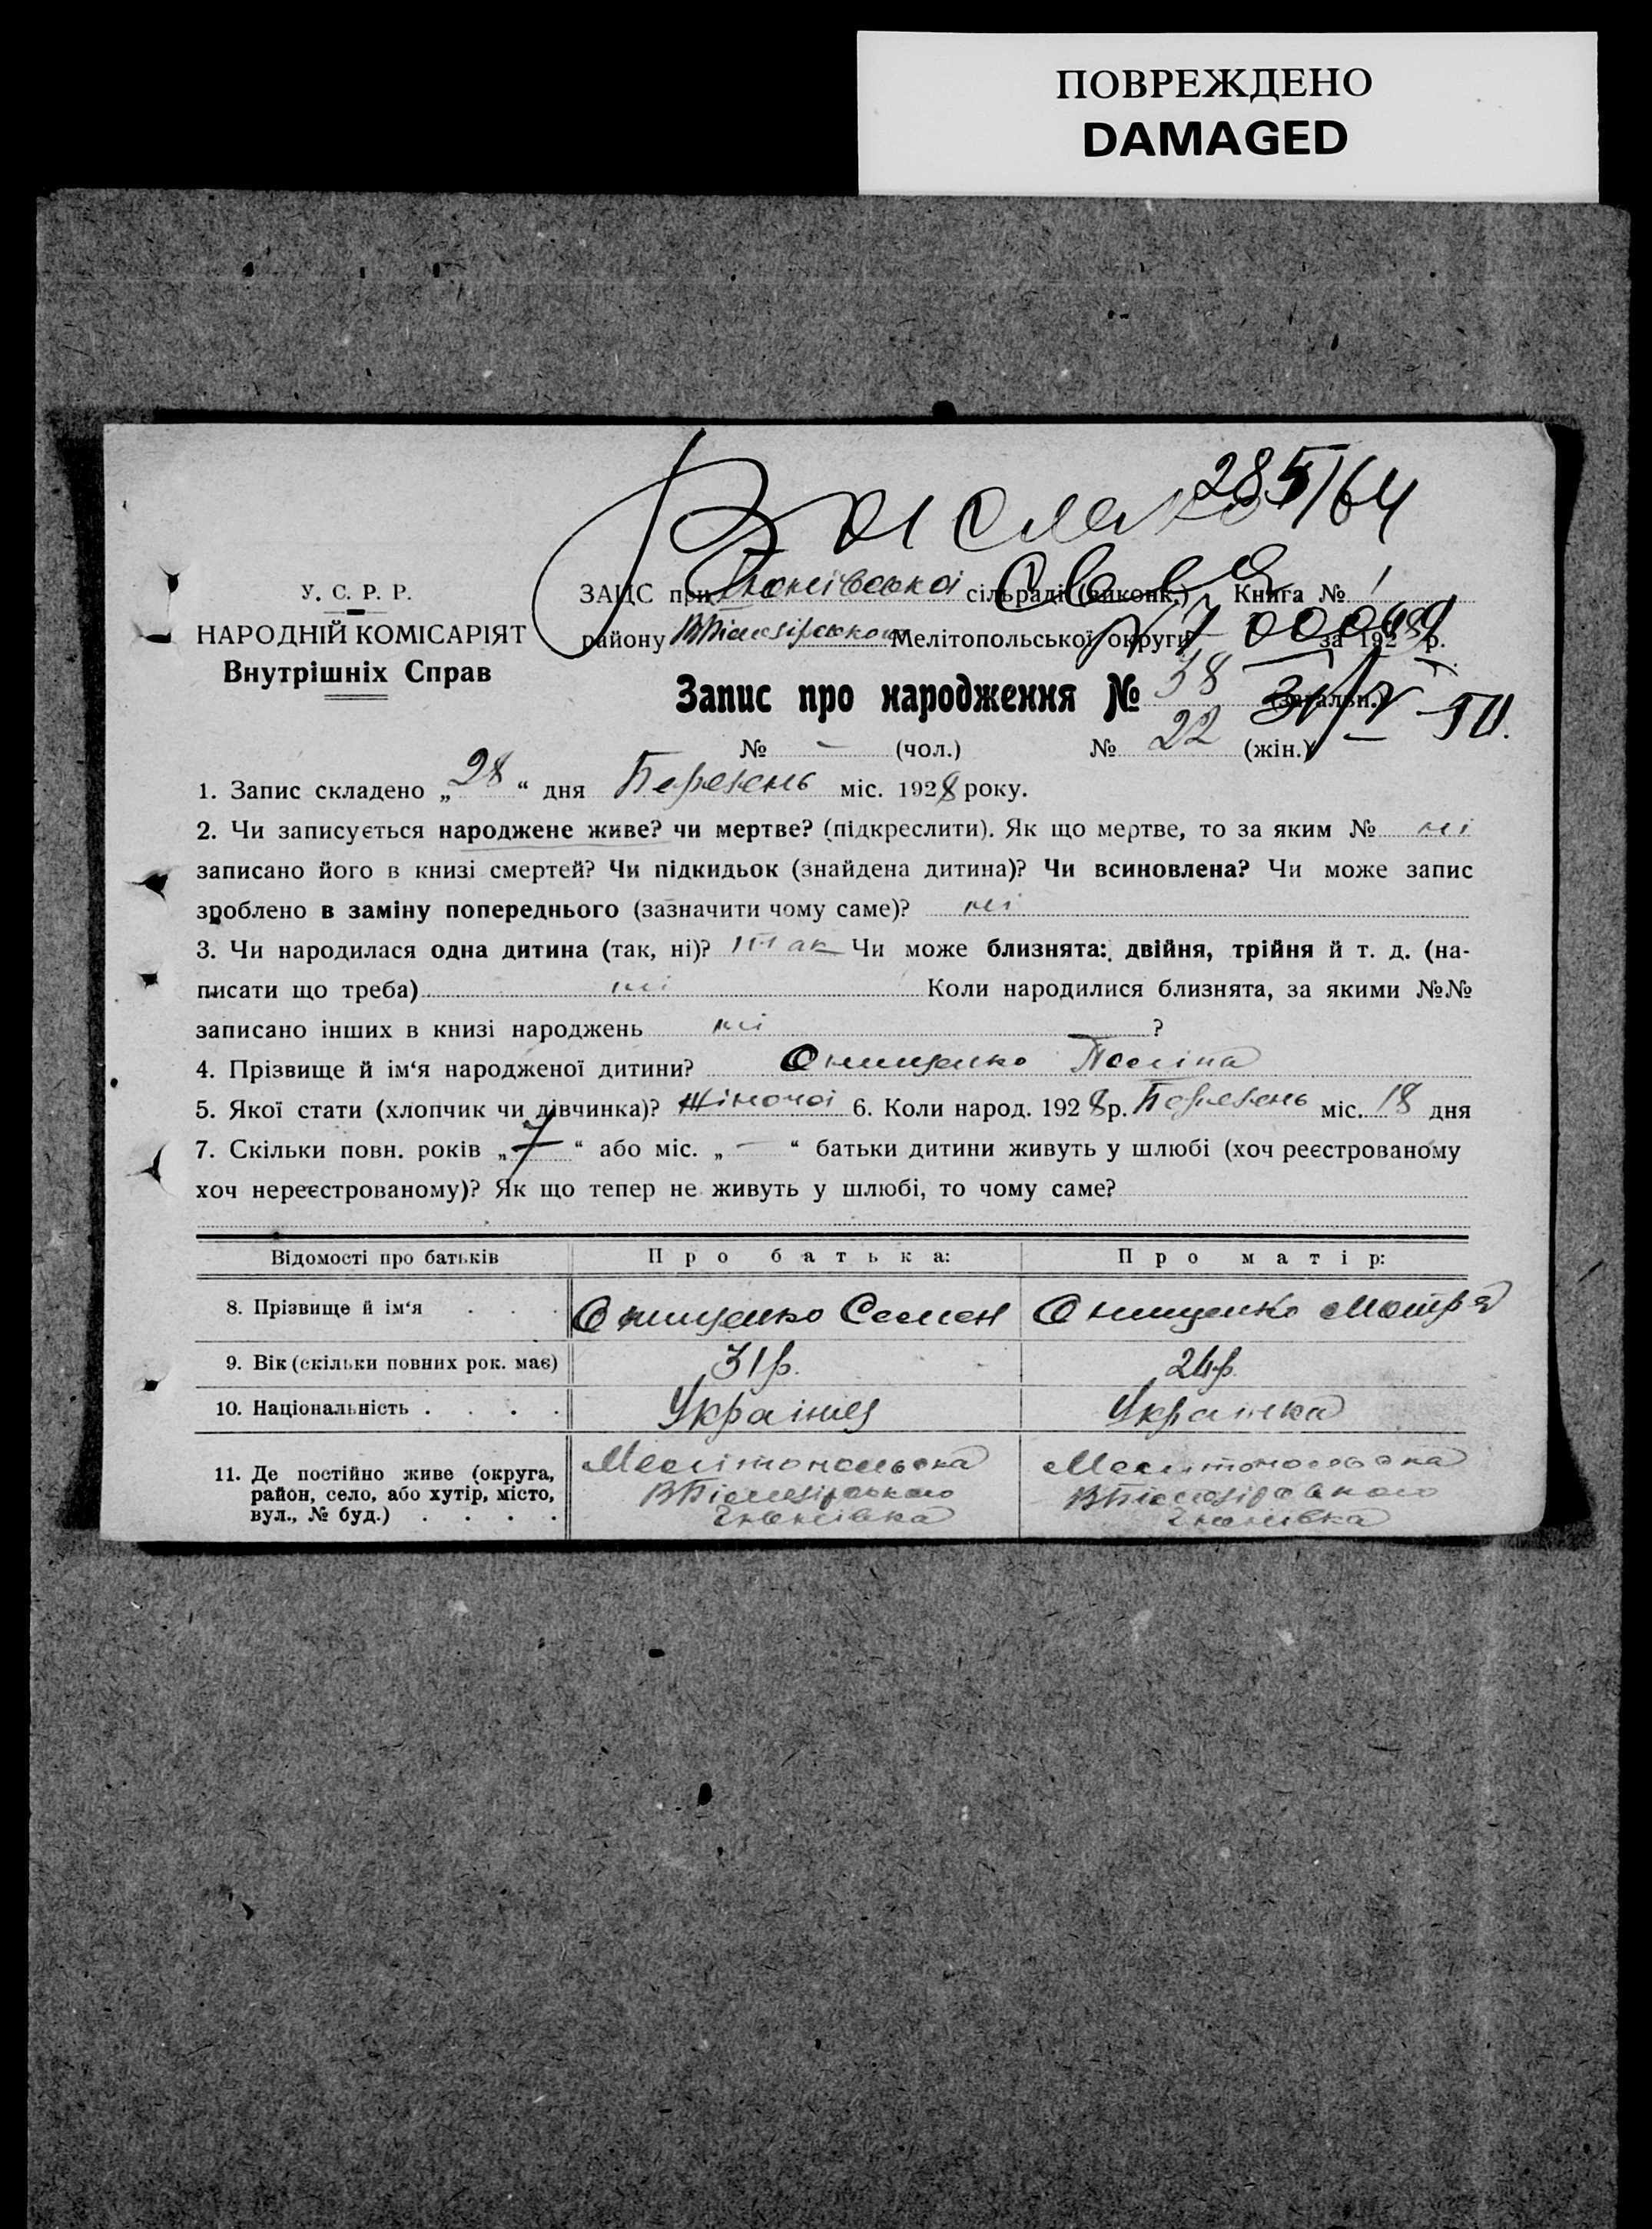 ПОВРЕЖДЕНО
DAMAGED
285/64
У. С. Р. Р.
НАРОДНІЙ КОМІСАРІЯТ
Внутрішніх Справ
ЗАЦС при сільраді (виконк.) Книга № 1
району Мелітопольської округи за 1928 р.
Запис про народження № 38 (загальн.)
№ – (чол.) № 22 (жін.)
1. Запис складено „28“ дня Березень міс. 1928 року.
2. Чи записується народжене живе? чи мертве? (підкреслити). Як що мертве, то за яким № ні
записано його в книзі смертей? Чи підкидьок (знайдена дитина)? Чи всиновлена? Чи може запис
зроблено в заміну попереднього (зазначити чому саме)? ні
3. Чи народилася одна дитина (так, ні)? так Чи може близнята: двійня, трійня й т. д. (на-
писати що треба) ні Коли народилися близнята, за якими №№
записано інших в книзі народжень ні ?
4. Прізвище й ім‘я народженої дитини? Онищенко Поліна
5. Якої стати (хлопчик чи дівчинка)? Жіночої 6. Коли народ. 1928 р. Березень міс. 18 дня
7. Скільки повн. років „7“ або міс. „—“ батьки дитини живуть у шлюбі (хоч реєстрованому
хоч нереєстрованому)? Як що тепер не живуть у шлюбі, то чому саме?
Відомості про батьків Про батька: Про матір:
8. Прізвище й ім‘я . . . Онищенко Семен Онищенко Мотря
9. Вік (скільки повних рок. має) 31 р. 24 р.
10. Національність . . . . Українец Українка
11. Де постійно живе (округа, Мелітопольска Мелітопольска
район, село, або хутір, місто, ВБілозірського ВБілозірського
вул., № буд.) . . . .